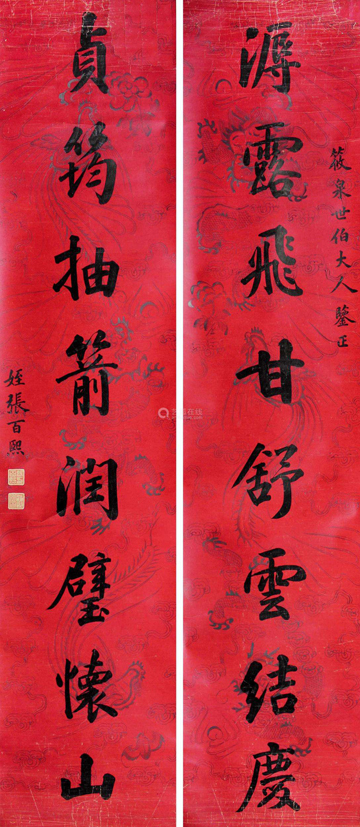 筱泉世伯大人鑒正
溽露飛甘舒雲結慶
貞筠抽箭潤璧懷山
姪張百熙